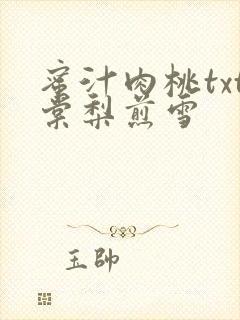 蜜汁肉桃txt
棠梨煎雪
玉帥